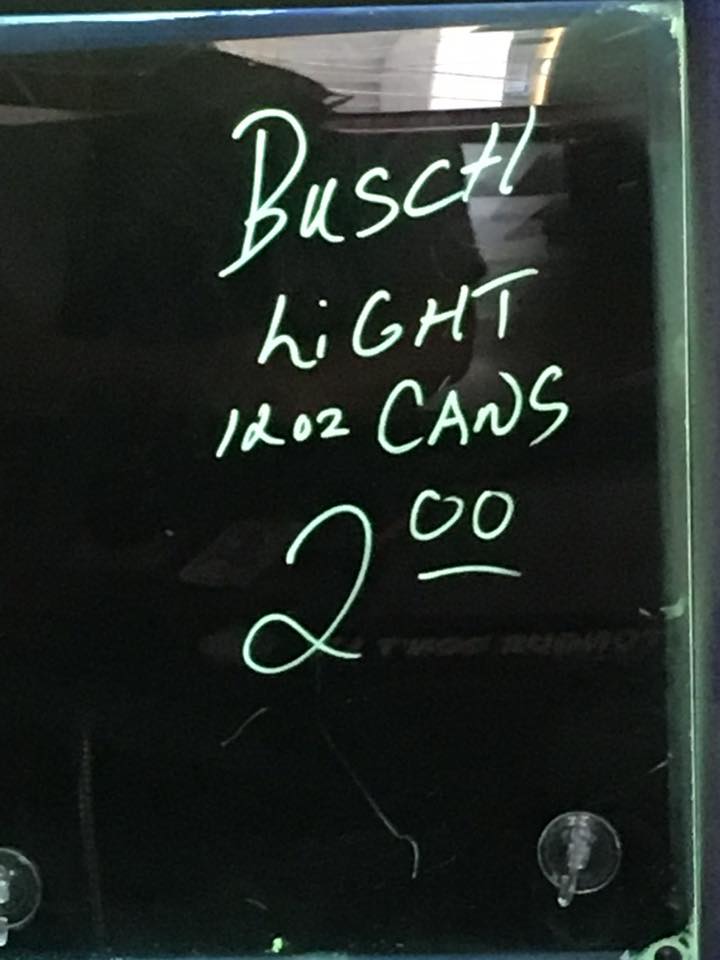 BUSCH
LiGHT
12oz CANS
2 00